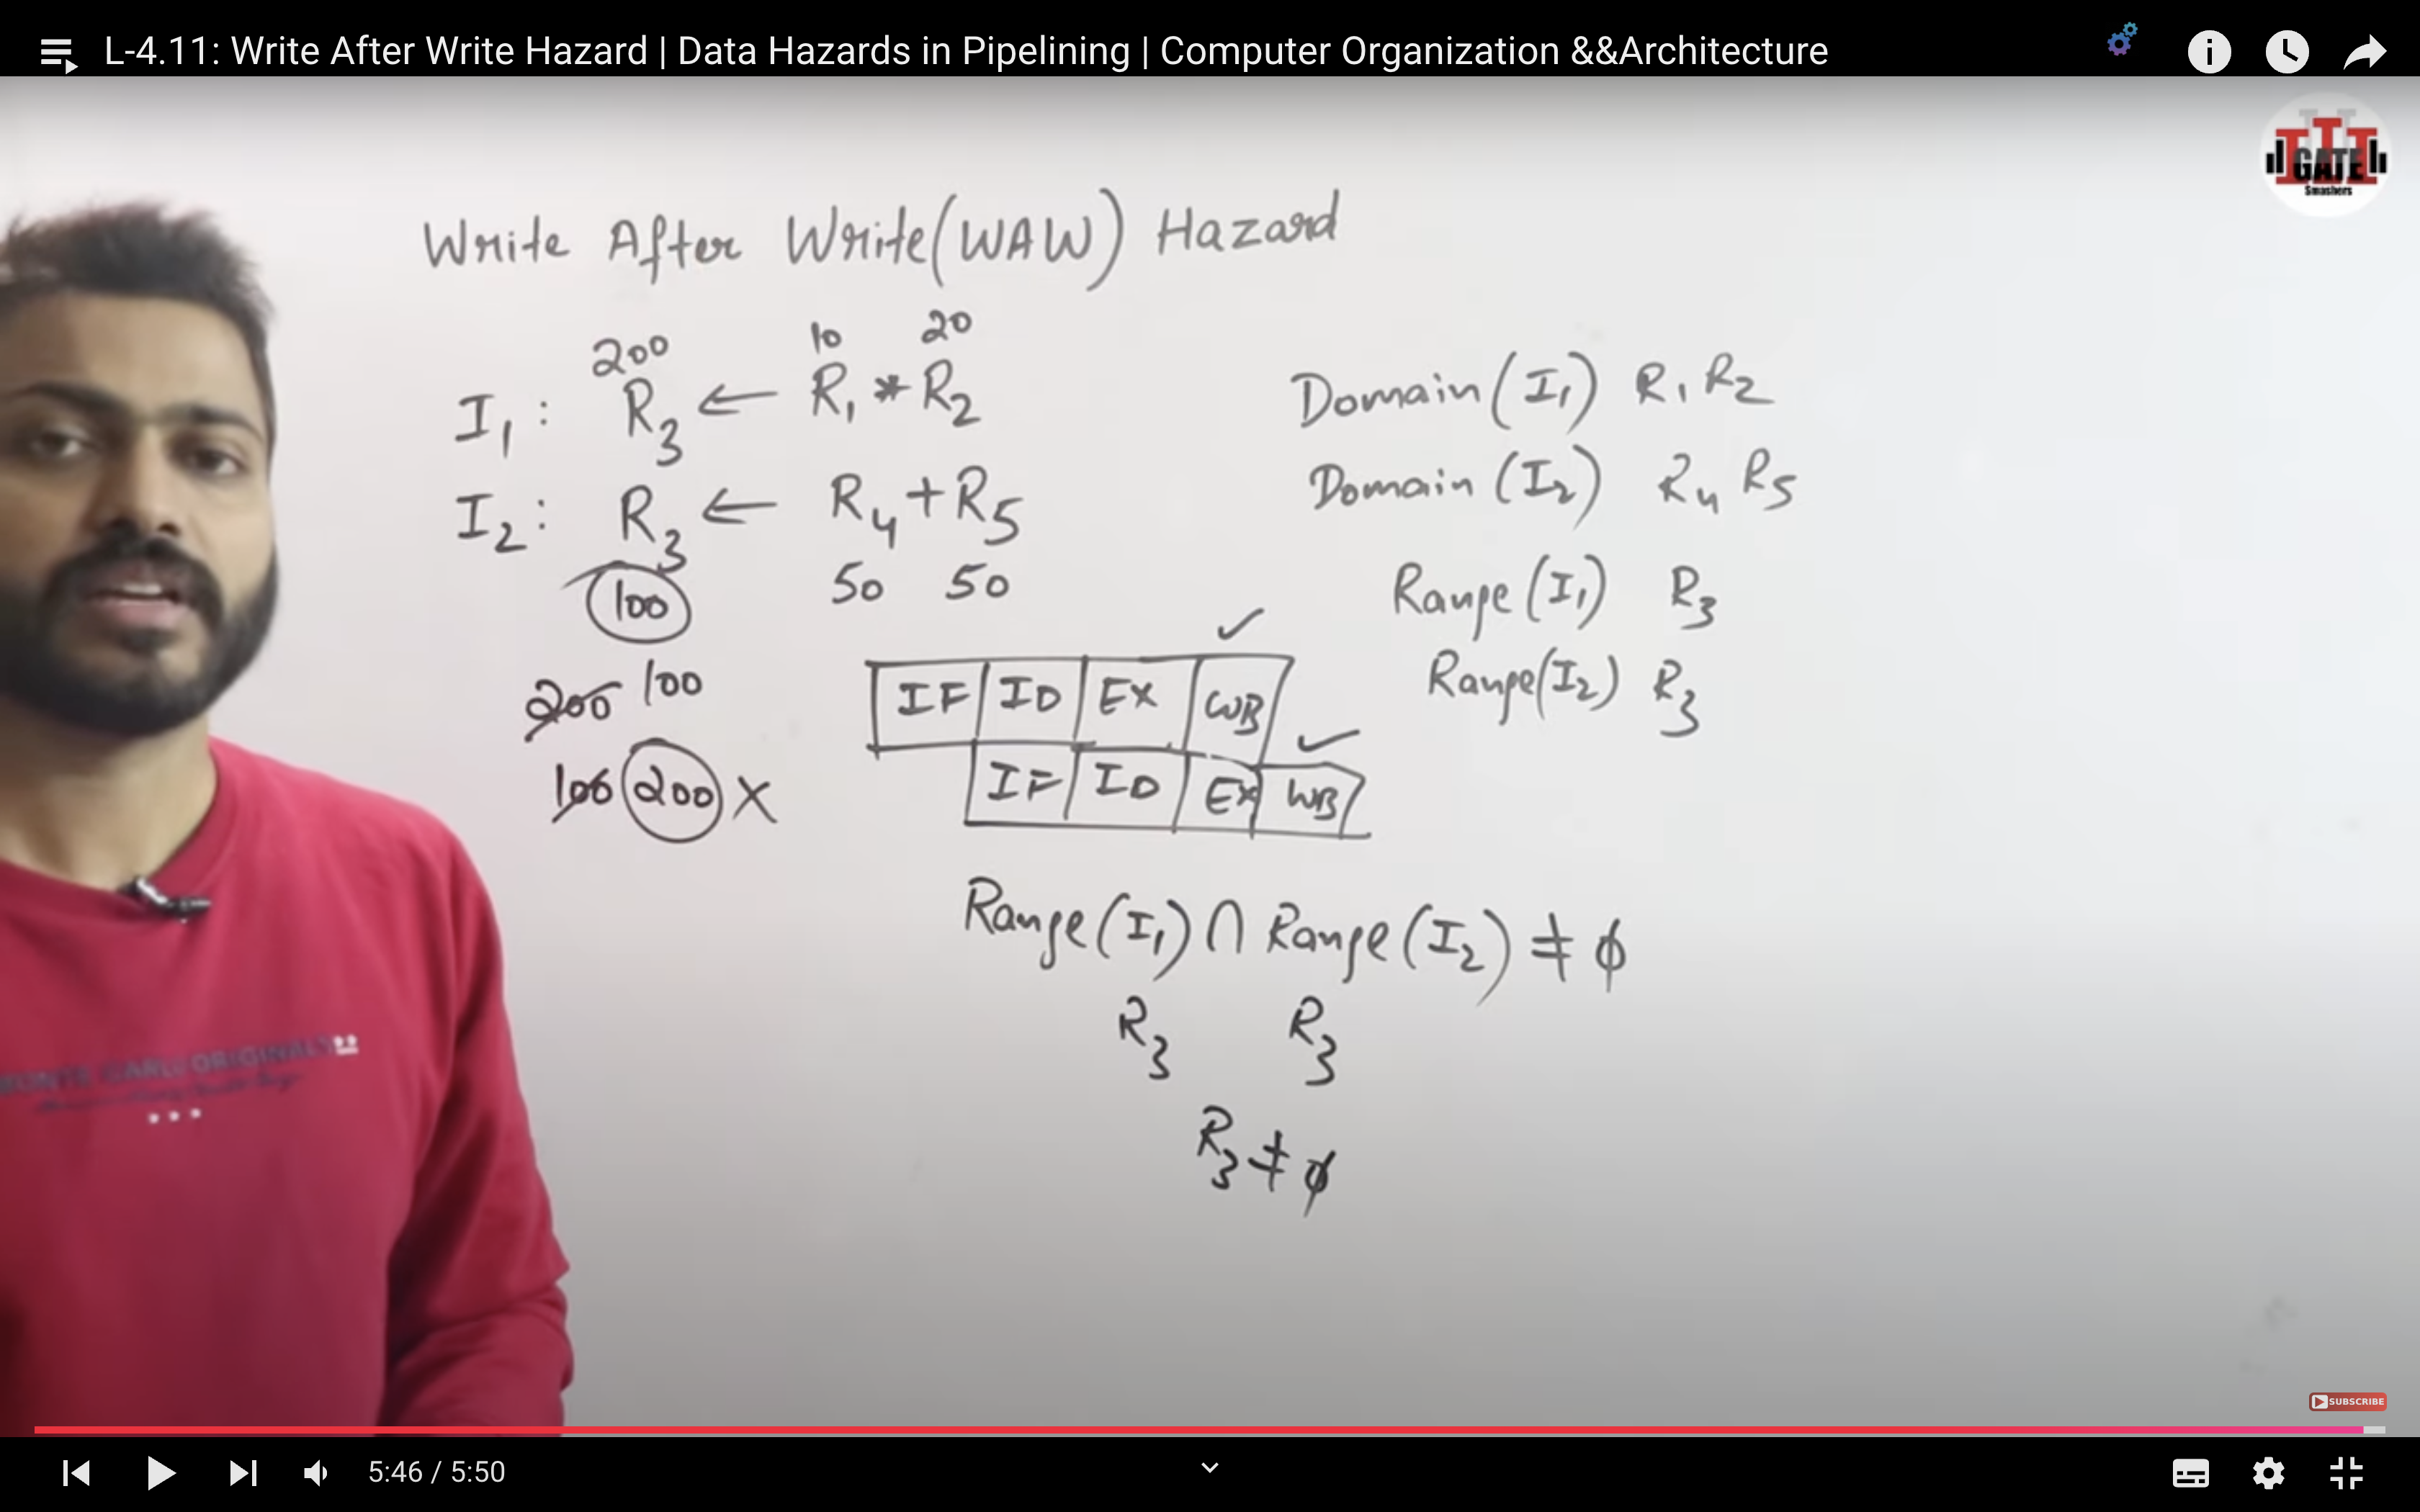 L-4.11: Write After Write Hazard | Data Hazards in Pipelining | Computer Organization &&Architecture
GATE
Smashers
Write After Write(WAW) Hazard
200 10 20
I₁ : R₃ ← R₁ * R₂
I₂ : R₃ ← R₄ + R₅
100 50 50
200 100
100 200 X
Domain (I₁) R₁ R₂
Domain (I₂) R₄ R₅
Range (I₁) R₃
Range(I₂) R₃
✓
IF ID EX WB
✓
IF ID EX WB
Range(I₁) ∩ Range(I₂) ≠ ϕ
R₃ R₃
R₃ ≠ ϕ
ORIGINALS
SUBSCRIBE
5:46 / 5:50